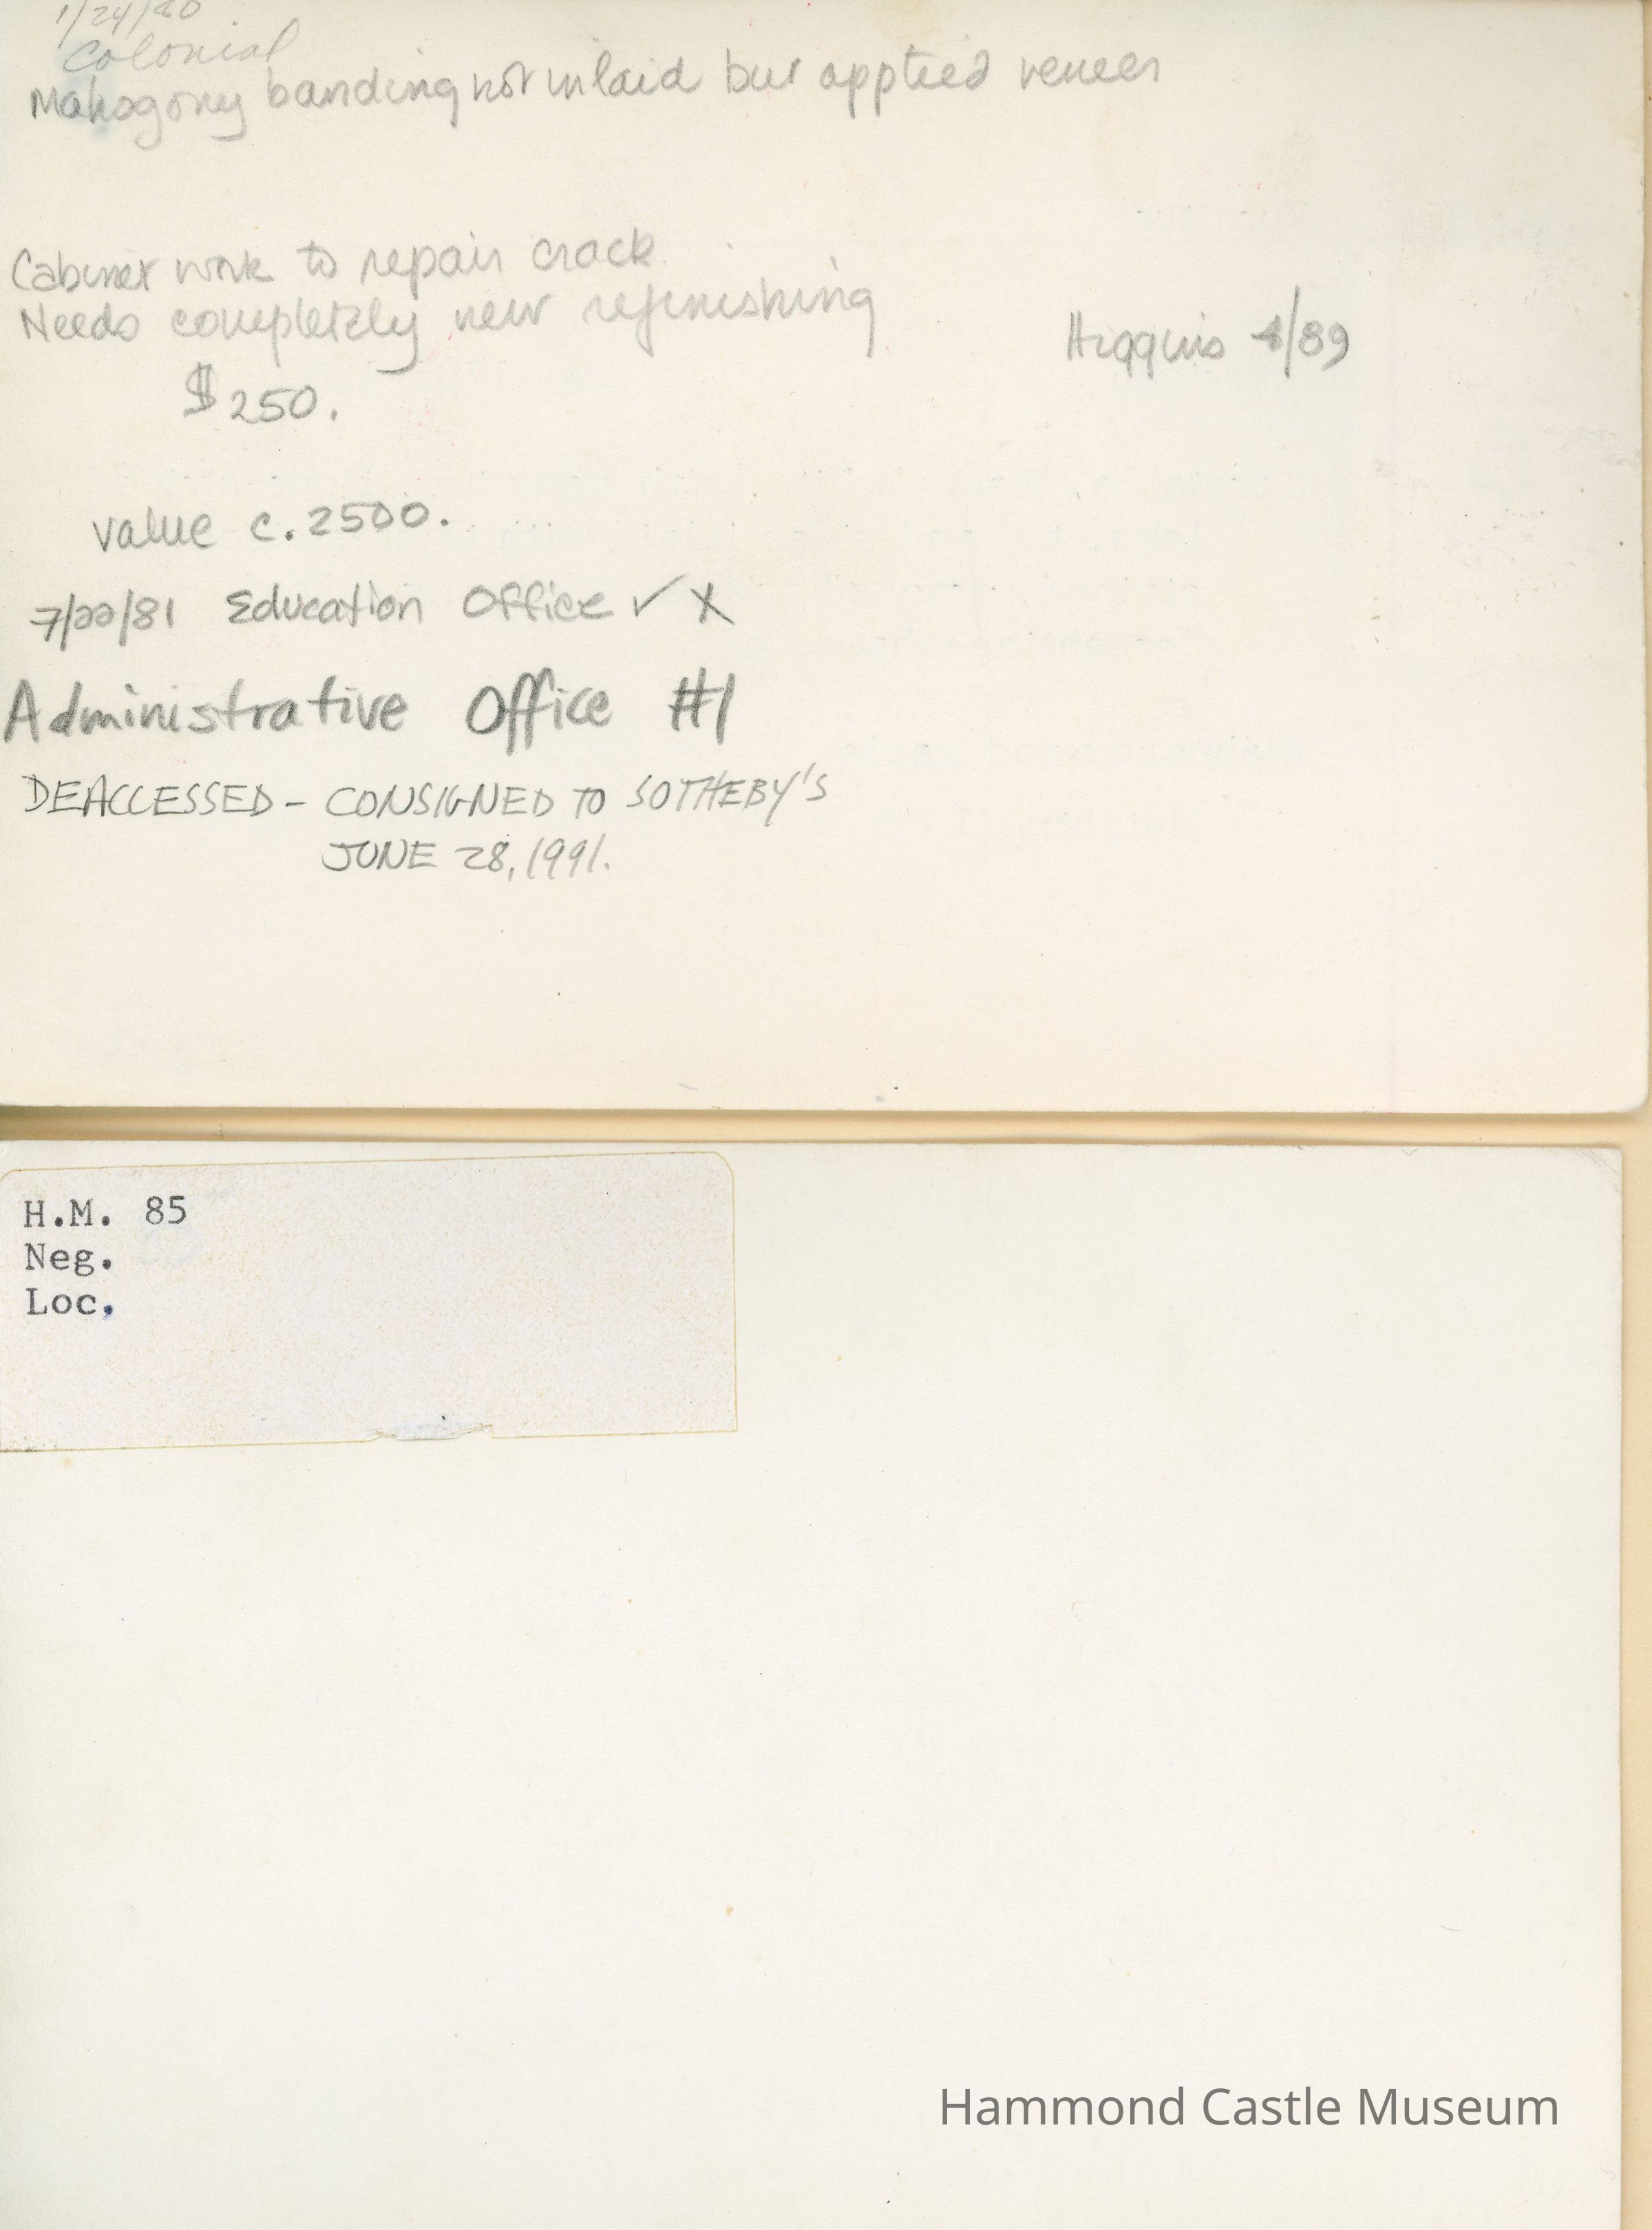 1/24/80
Colonial
Mahogony banding not inlaid but applied veneer
Cabinet work to repair crack.
Needs completely new refinishing
Higgins 4/89
$250.
value c. 2500.
7/22/81 Education Office ✓ X
Administrative Office #1
DEACCESSED - CONSIGNED TO SOTHEBY'S
JUNE 28, 1991.
H.M. 85
Neg.
Loc.
Hammond Castle Museum